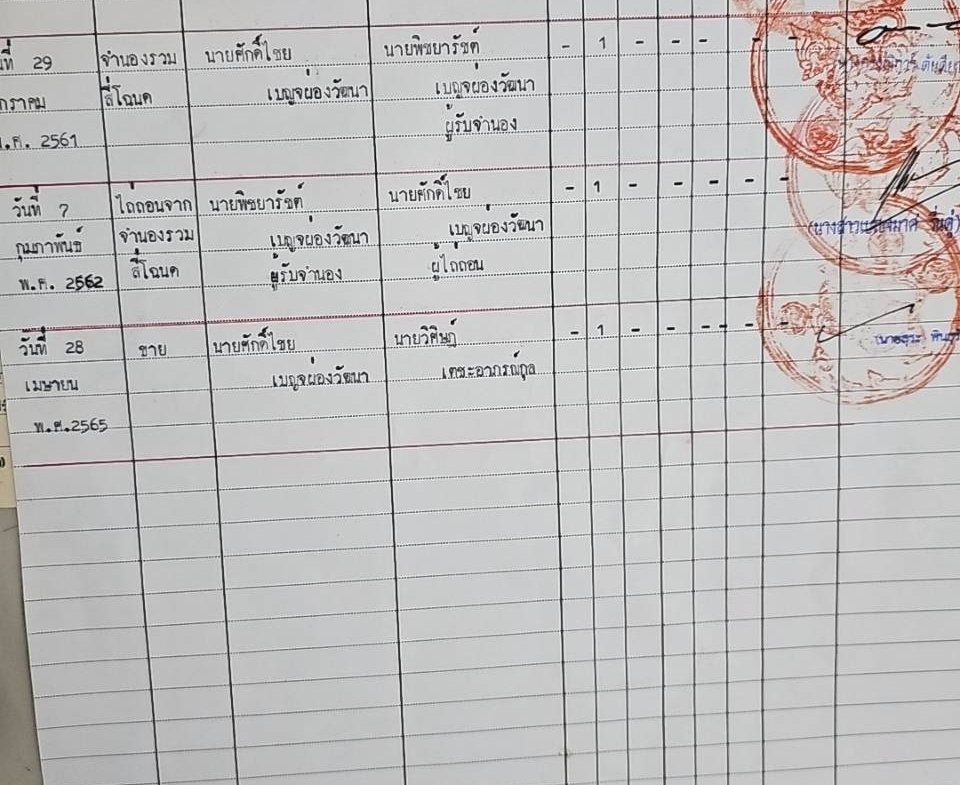 29 จำนองรวม นายศักดิ์ไชย นายพิชยารัชต์ - 1 - - - - -
สี่โฉนด เบญจผ่องวัฒนา เบญจผ่องวัฒนา
ผู้รับจำนอง
2561
วันที่ 7 ไถ่ถอนจาก นายพิชยารัชต์ นายศักดิ์ไชย - 1 - - - - -
กุมภาพันธ์ จำนองรวม เบญจผ่องวัฒนา เบญจผ่องวัฒนา
พ.ศ. 2562 สี่โฉนด ผู้รับจำนอง ผู้ไถ่ถอน
วันที่ 28 ขาย นายศักดิ์ไชย นายวิศิษฎ์ - 1 - - - - - -
เมษายน เบญจผ่องวัฒนา เตชะอาภรณ์กุล
พ.ศ.2565